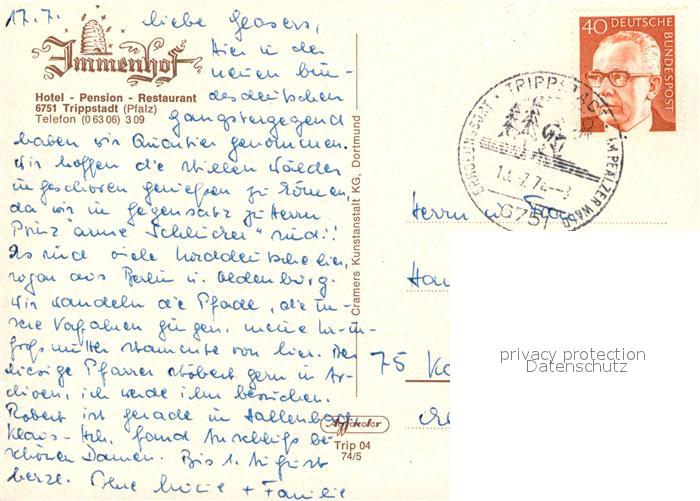 17.7.
Liebe Glasers,
Immenhof
Hotel - Pension - Restaurant
6751 Trippstadt (Pfalz)
Telefon (0 63 06) 3 09
Hier in der
neuen bun-
desdeutschen
gangstergegend
haben wir Quartier genommen.
Wir hoffen die stillen Wälder
ungeschoren genießen zu können,
da wir im gegensatz zu Herrn
Prinz "arme Schlucker" sind!!
Es sind viele Norddeutsche hier,
sogar aus Berlin u. Oldenburg.
Wir wandeln die Pfade, die un-
sere Vorfahren gingen, meine Ur-ur-
großmutter stammte von hier. Der
hiesige Pfarrer stöbert gern in Ar-
chiven, ich werde ihn besuchen.
Robert ist gerade in
Klaus-Hch. fand Anschluß bei
schönen Damen. Bis 1. August
herzl. + Familie
Cramers Kunstanstalt KG, Dortmund
Trip 04
74/5
40 DEUTSCHE BUNDESPOST
TRIPPSTADT
IM PFÄLZER WALD
ERHOLUNGSORT
7.74-8
6751
Herrn u.
75
privacy protection
Datenschutz